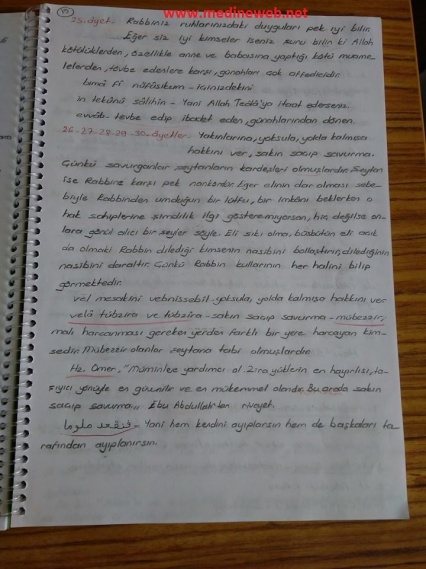 www.medineweb.net
15
25. âyet- Rabbiniz ruhlarınızdaki duyguları pek iyi bilir.
Eğer siz iyi kimseler iseniz şunu bilin ki Allah
kötülüklerden, özellikle anne ve babasına yaptığı kötü muame
lelerden, tevbe edenlere karşı, günahları çok affedicidir.
bimâ fî nüfûsikum - içinizdekini
in tekûnû sâlihîn - Yani Allah Teâlâ'ya itaat ederseniz.
evvâb- tevbe edip ibadet eden, günahlarından dönen.
26-27-28-29-30-âyetler- Yakınlarına, yoksula, yolda kalmışa
hakkını ver, sakın saçıp savurma.
Çünkü savurganlar şeytanların kardeşleri olmuşlardır. Şeytan
ise Rabbine karşı pek nankördür. Eğer elinin dar olması sebe-
biyle Rabbinden umduğun bir lütfu, bir imkânı beklerken o
hak sahiplerine şimdilik ilgi gösteremiyorsan, hiç değilse on-
lara gönül alıcı bir şeyler söyle. Eli sıkı olma, büsbütün eli açık
da olma. Rabbin dilediği kimsenin nasibini bollaştırır, dilediğinin
nasibini daraltır. Çünkü Rabbin kullarının her halini bilip
görmektedir.
vel mesakîni vebnissebîl-yoksula, yolda kalmışa hakkını ver
velâ tübzira ve tübzîra - sakın saçıp savurma - mübezzir,
malı harcanması gereken yerden farklı bir yere harcayan kim-
sedir. Mübezzir olanlar şeytana tabi olmuşlardır.
Hz. Ömer, "Müminlere yardımcı ol. Zira yüklerin en hayırlısı, ta-
şıyıcı yönüyle en güvenilir ve en mükemmel olandır. Bu arada sakın
saçıp savurma.. Ebu Abdullah'tan rivayet.
فتقعد ملوما - Yani hem kendini ayıplarsın hem de başkaları ta-
rafından ayıplanırsın.